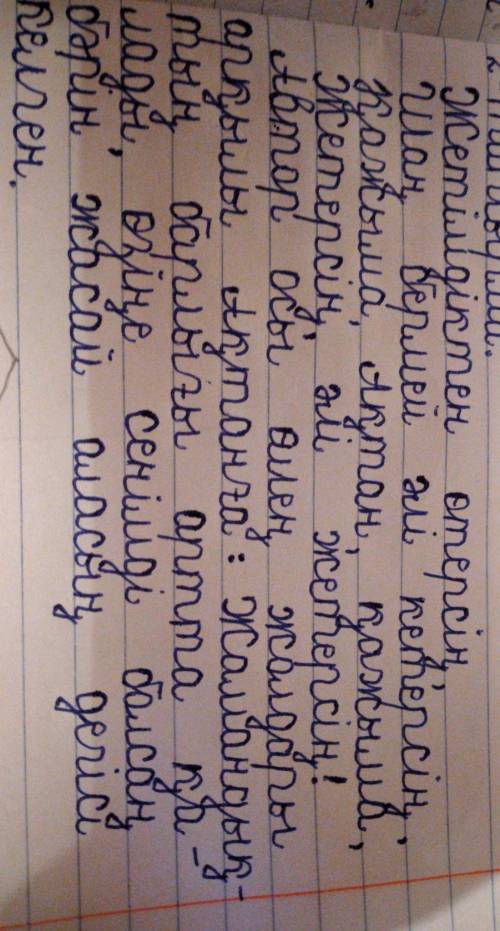 Жетілдіктен өтерсің,
Шаң бермей әлі кетерсің,
Қажыма, Ақтан, қажыма,
Жетерсің, әлі жетерсің!
Автор осы өлең жолдары
арқылы Ақтанға: Жамандық-
тың барлығы артта қа-
лады, өзіңе сенімді болсаң
бәрін жасай аласың дегісі
келген.